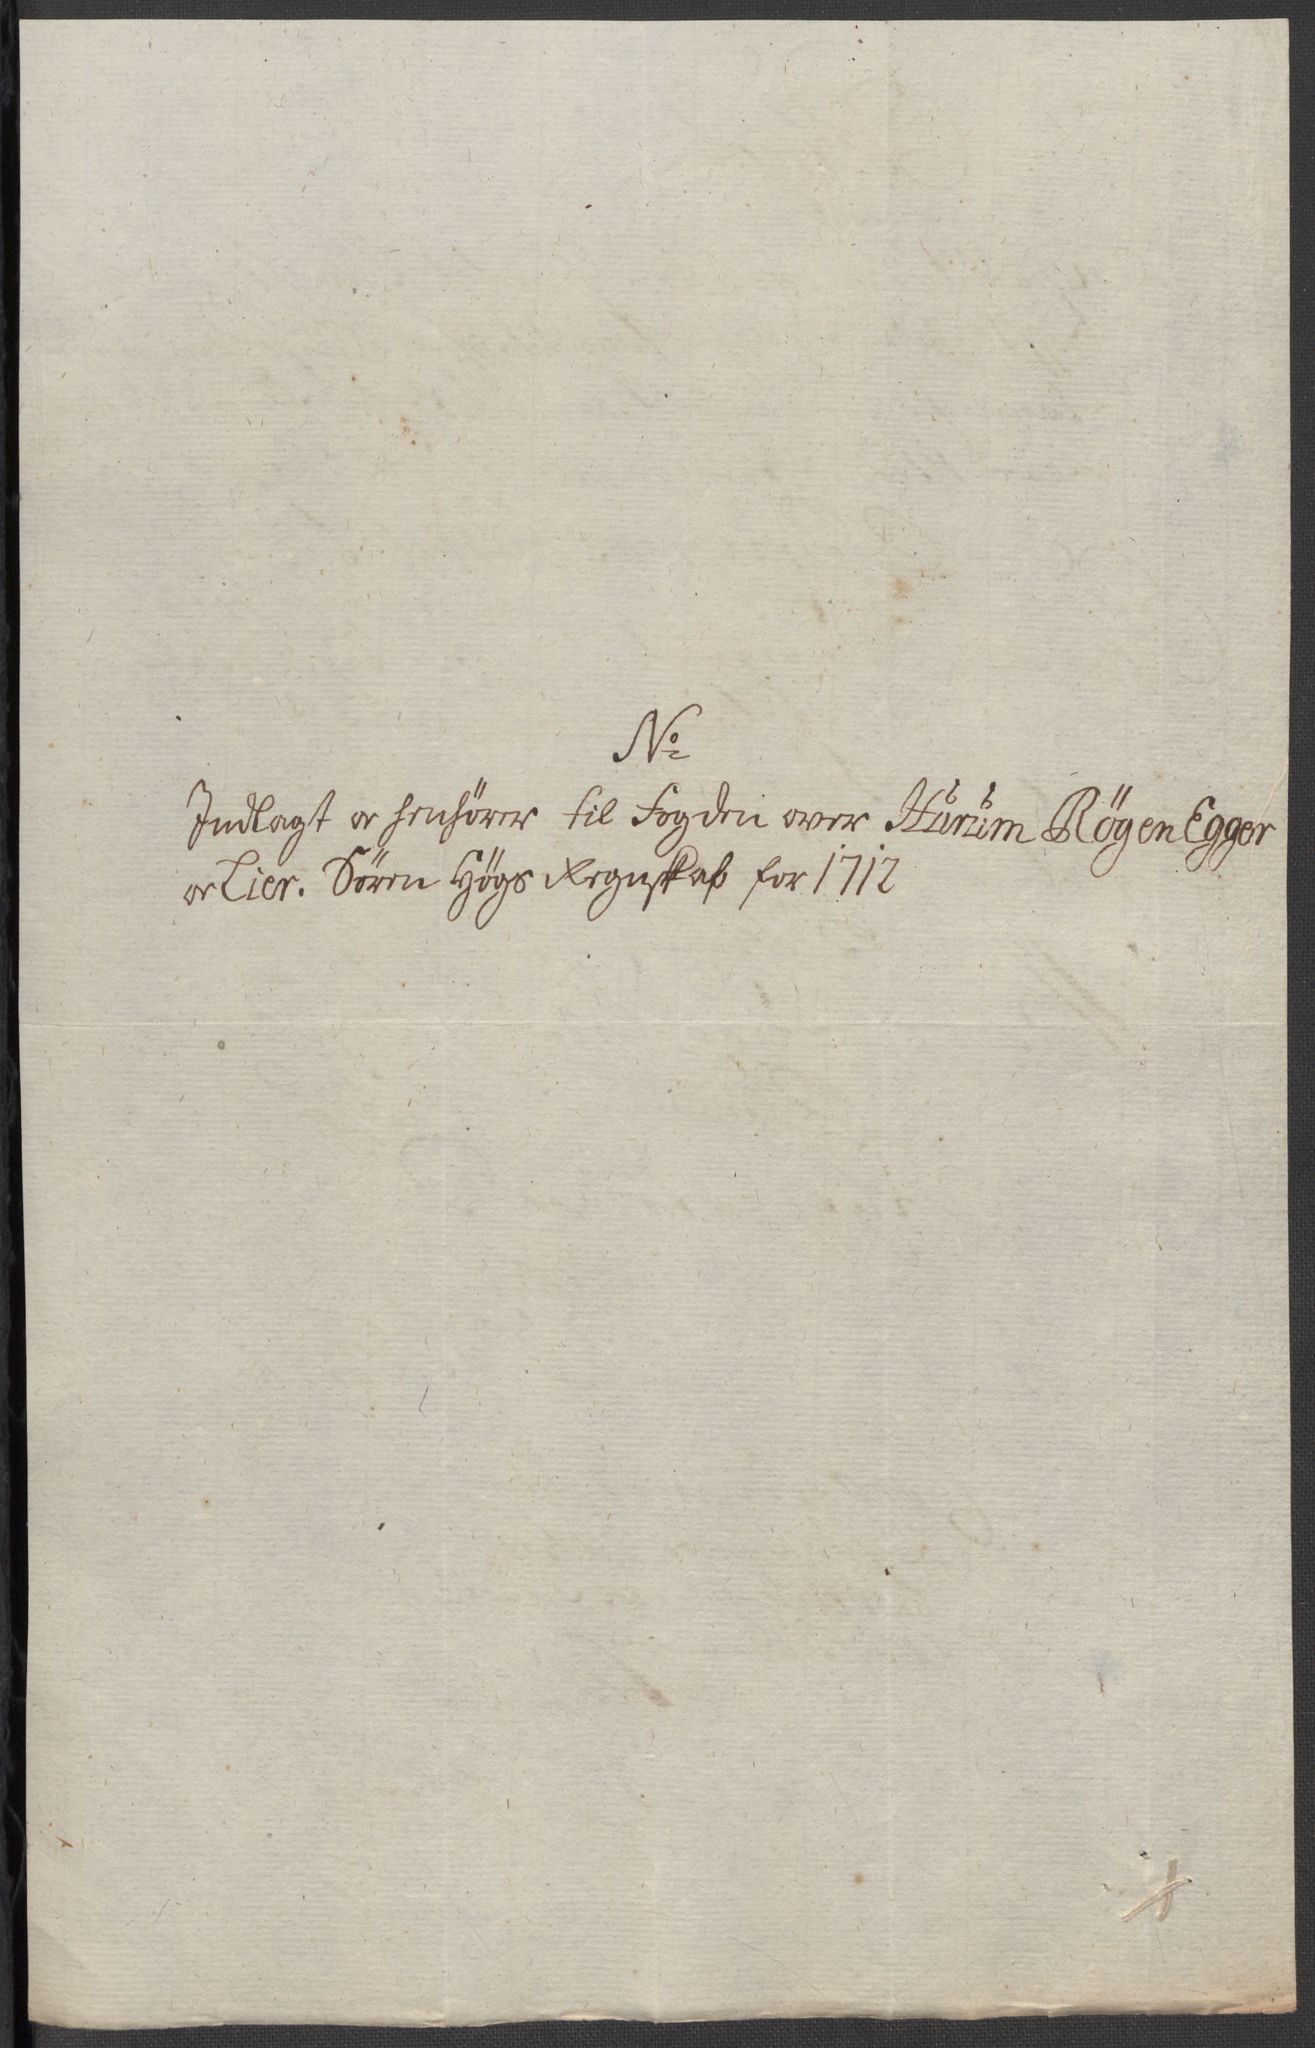 No
Indlagt or henhörer til Fogden over Hurum Rögen Egger
or Lier. Sören Högs Regnskab for 1712